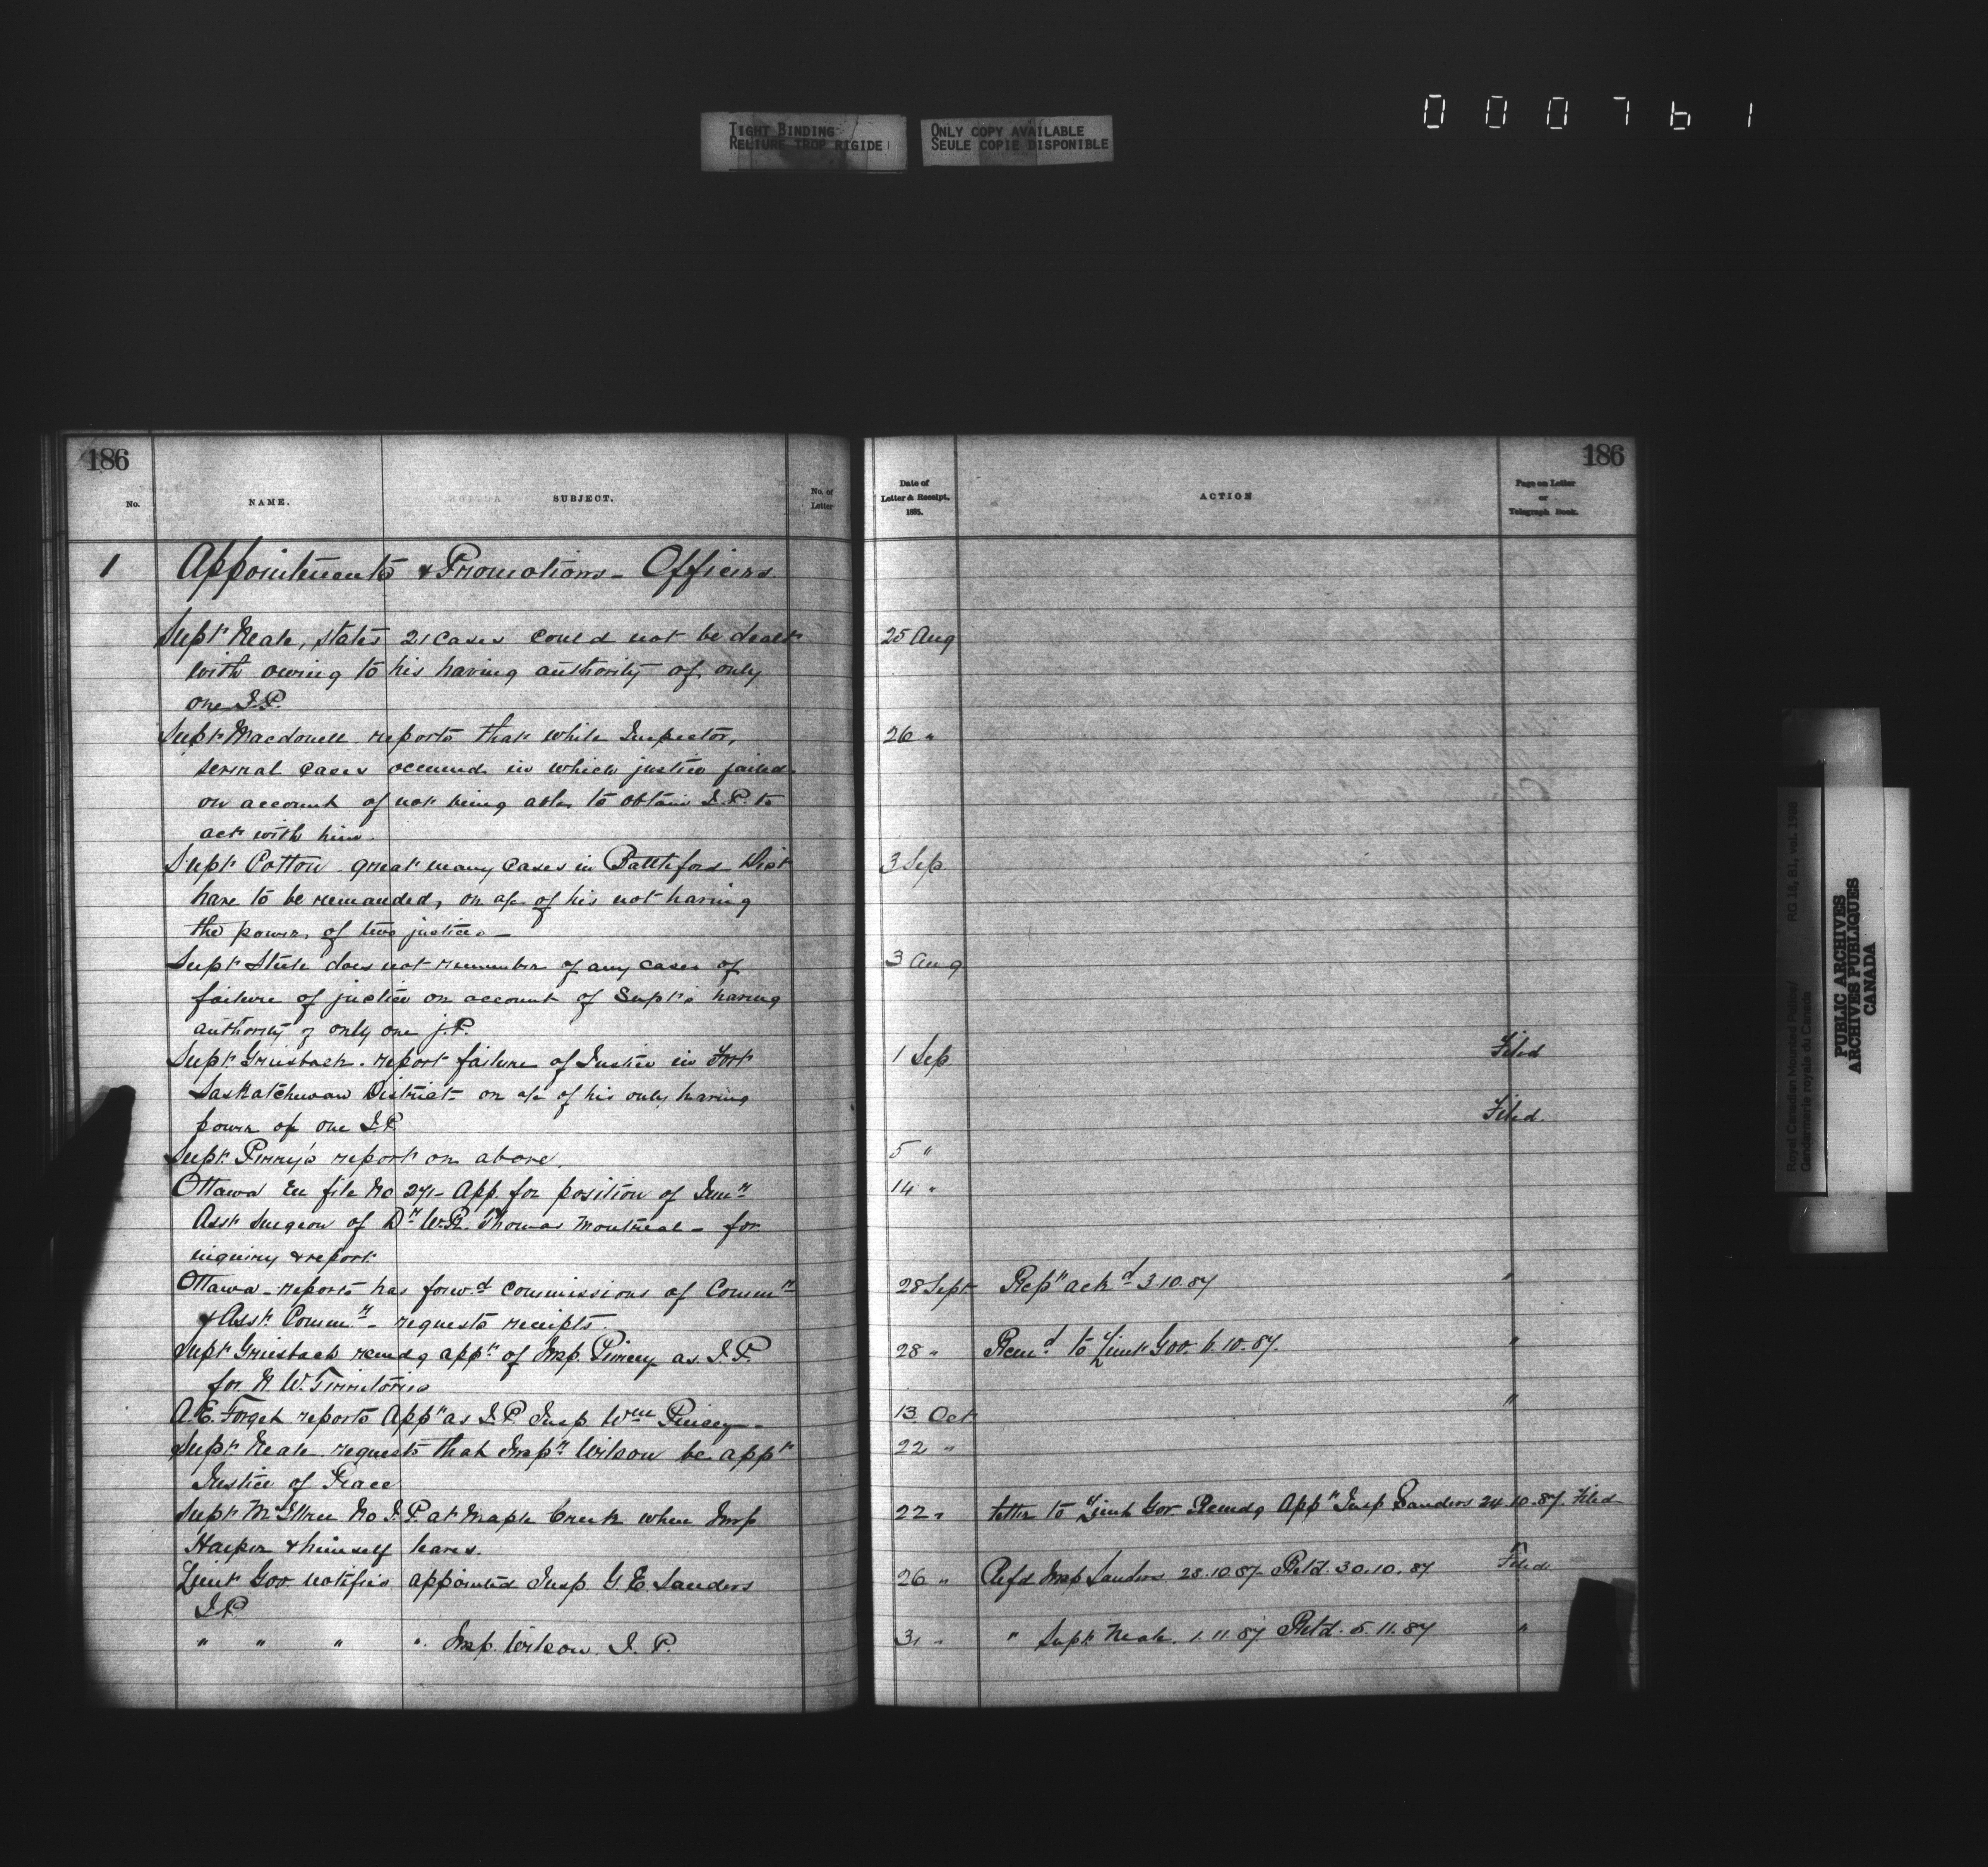 000761
TIGHT BINDING
RELIURE TROP RIGIDE
ONLY COPY AVAILABLE
SEULE COPIE DISPONIBLE
186
No.
NAME.
SUBJECT.
No. of
Letter
1
Appointments & Promotions - Officers
Supt Neale, states 21 cases could not be dealt
with owing to his having authority of only
one J.P.
Supt Macdonell reports that while Inspector,
several cases occurred in which justice failed
on account of not being able to obtain J.P. to
act with him.
Supt Cotton great many cases in Battleford Dist
have to be remanded, on a/c of his not having
the power, of two justices -
Supt Steele does not remember of any cases of
failure of justice on account of Supt's having
authority of only one J.P.
Supt Griesbach. report failure of Justice in Fort
Saskatchewan District - on a/c of his only having
power of one J.P.
Supt. Perry's report on above.
Ottawa En file No 271 - App. for position of
Asst Surgeon of Dr W.R. Thomas Montreal - for
inquiry & report
Ottawa - reports has forwd commissions of Commr
& Asst. Commr - requests receipts.
Supt Griesbach recmdg appt of Insp. Piercy as J.P.
for N. W. Territories
A.E. Forget reports Appt as J.P. Insp Wm Piercy -
Supt Neale requests that Inspr Wilson be appt
Justice of Peace
Supt McIllree No J.P. at Maple Creek when Insp
Harper & himself leaves.
Lieut Gov. notifies appointed Insp G. E. Sanders
J.P.
" " " " Insp. Wilson. J. P.
186
Date of
Letter & Receipt.
188 .
ACTION
Page on Letter
or
Telegraph Book.
25 Aug
26 "
3 Sep
3 Aug
1 Sep Filed
Filed.
5 "
14 "
28 Sept Rept ackd 3.10.87 "
28 " Recmd to Lieut Gov. 6.10.87. "
13 Oct "
22 "
22 " Letter to Lieut Gov Recmdg Appt Insp Sanders 24.10.87 Filed
26 " Refd Insp Sanders 28.10.87 Retd. 30.10.87 Filed
31 " " Supt Neale. 1.11.87 Retd. 5.11.87 "
Royal Canadian Mounted Police/ RG 18, B1, vol. 1988
Gendarmerie royale du Canada
PUBLIC ARCHIVES
ARCHIVES PUBLIQUES
CANADA